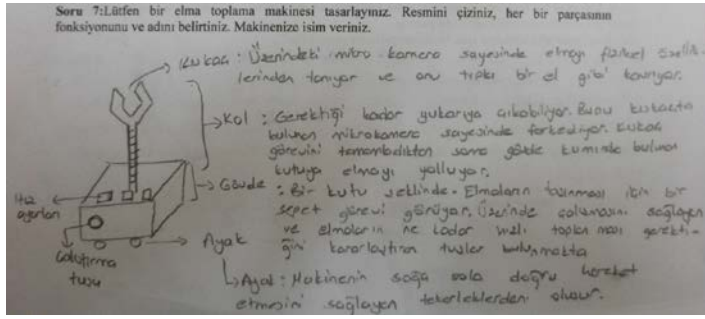 Soru 7:Lütfen bir elma toplama makinesi tasarlayınız. Resmini çiziniz, her bir parçasının
fonksiyonunu ve adını belirtiniz. Makinenize isim veriniz.
Kıskaç : Üzerindeki mikro kamera sayesinde elmayı fiziksel özellik-
lerinden tanıyor ve onu tıpkı bir el gibi kavrıyor.
Kol : Gerektiği kadar yukarıya çıkabiliyor. Bunu kıskaçta
bulunan mikrokamera sayesinde farkediyor. Kıskaç
görevini tamamladıktan sonra gövde kısmında bulunan
kutuya elmayı yolluyor.
Gövde : Bir kutu şeklinde. Elmaların taşınması için bir
sepet görevi görüyor. Üzerinde çalışmasını sağlayan
ve elmaların ne kadar hızlı toplanması gerekti-
ğini kararlaştıran tuşlar bulunmakta
Hız
ayarları
Çalıştırma
tuşu
Ayak
Ayak : Makinenin sağa sola doğru hareket
etmesini sağlayan tekerleklerden oluşur.